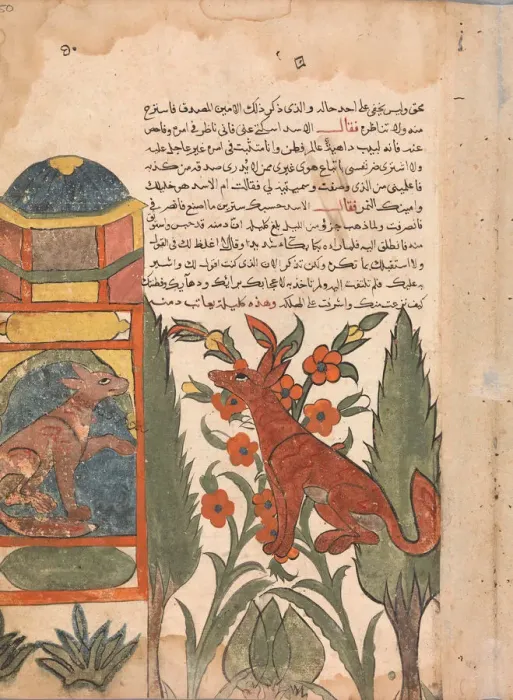 50
بحق وليس يخفى على احد حاله والذى ذكر ذلك الامين المصدق فاسترح
منه ولا تناظره فقال الاسد اسكتى عنى فانى ناظر فى امره وفاحص
عنه فانه لبيب داهية عالم وفطن وانا متثبت فى امره غير عاجل عليه
ولا اشترى ضر نفسى اتباع هوى غيرى ممن لا يدرى صدقه من كذبه
فاعلمينى من الذى وصفت وسميتيه لى فقالت ام الاسد هو خليلك
وامينك النمر فقال الاسد حسبك سترين ما اصنع فانصرفى
فانصرفت ولما ذهب جزؤ من الليل بلغ كليله ان دمنه قد حبس واستوثق
منه فانطلق اليه فلما راه بكا بكاء شديدا وقال لا اغلظ لك فى القول
ولا استقبلك بما تكره ولكن تذكر الان الذى كنت اقول لك واشير
به عليك فلم تلتفت اليه ولم تاخذ به لاعجابك برايك ودهايك وفطنتك
كيف نزعت منك واشرفت على الهلكه وهذه كليلة يعاتب دمنه